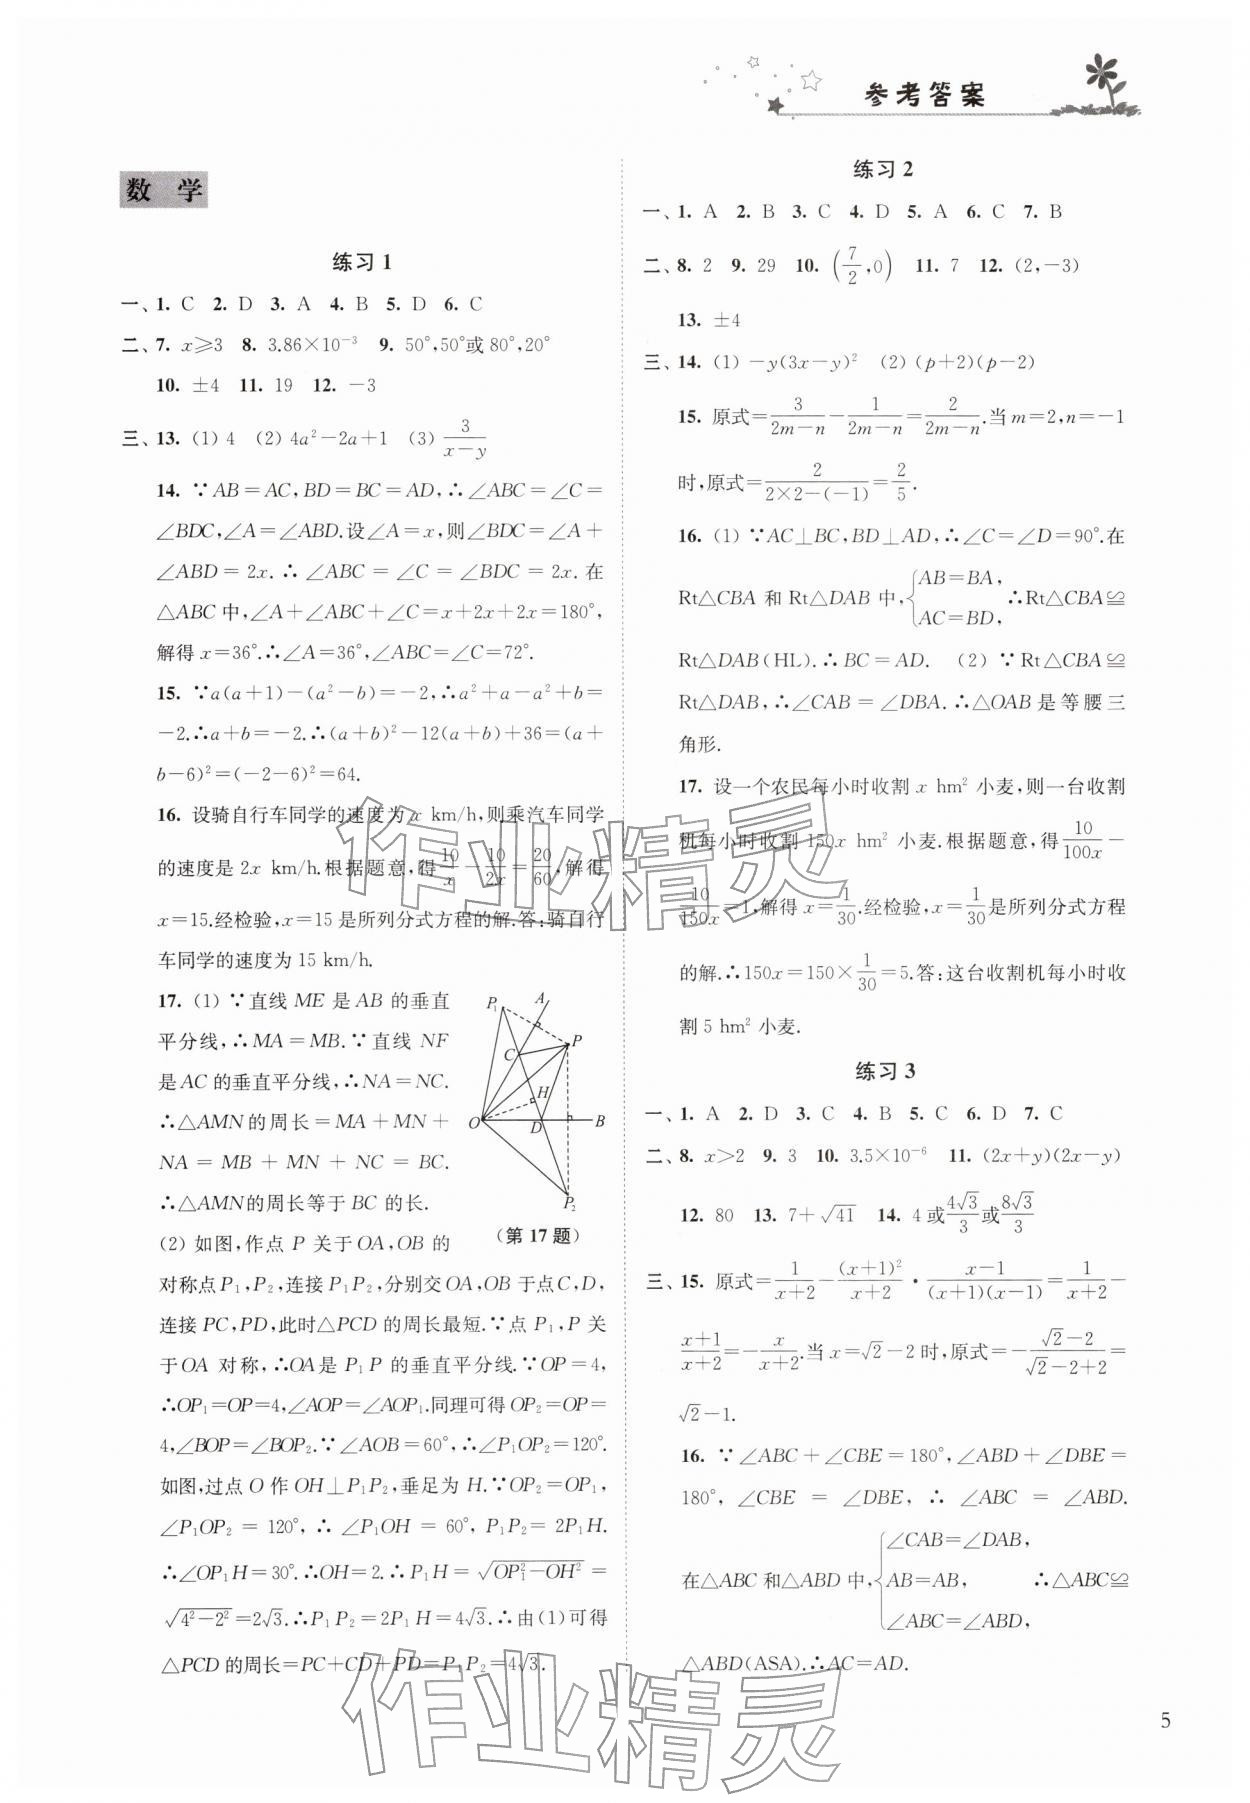 参考答案
数 学
练习 1
一、1. C 2. D 3. A 4. B 5. D 6. C
二、7. x≥3 8. 3.86×10⁻³ 9. 50°,50°或 80°,20°
10. ±4 11. 19 12. －3
三、13. (1) 4 (2) 4a²－2a＋1 (3) 3/(x－y)
14. ∵AB＝AC,BD＝BC＝AD,∴∠ABC＝∠C＝
∠BDC,∠A＝∠ABD.设∠A＝x,则∠BDC＝∠A＋
∠ABD＝2x.∴∠ABC＝∠C＝∠BDC＝2x.在
△ABC 中,∠A＋∠ABC＋∠C＝x＋2x＋2x＝180°,
解得 x＝36°.∴∠A＝36°,∠ABC＝∠C＝72°.
15. ∵a(a＋1)－(a²－b)＝－2,∴a²＋a－a²＋b＝
－2.∴a＋b＝－2.∴(a＋b)²－12(a＋b)＋36＝(a＋
b－6)²＝(－2－6)²＝64.
16. 设骑自行车同学的速度为 x km/h,则乘汽车同学
的速度是 2x km/h.根据题意,得10/x－10/2x＝20/60,解得
x＝15.经检验,x＝15 是所列分式方程的解.答:骑自行
车同学的速度为 15 km/h.
17. (1) ∵直线 ME 是 AB 的垂直
平分线,∴MA＝MB.∵直线 NF
是 AC 的垂直平分线,∴NA＝NC.
∴△AMN 的周长＝MA＋MN＋
NA＝MB＋MN＋NC＝BC.
∴△AMN的周长等于 BC 的长.
P₁ A P C H O D B P₂
(第 17 题)
(2) 如图,作点 P 关于 OA,OB 的
对称点 P₁,P₂,连接 P₁P₂,分别交OA,OB 于点C,D,
连接 PC,PD,此时△PCD 的周长最短.∵点 P₁,P 关
于OA 对称,∴OA是 P₁P 的垂直平分线.∵OP＝4,
∴OP₁＝OP＝4,∠AOP＝∠AOP₁.同理可得 OP₂＝OP＝
4,∠BOP＝∠BOP₂.∵∠AOB＝60°,∴∠P₁OP₂＝120°.
如图,过点 O 作 OH⊥P₁P₂,垂足为 H.∵OP₂＝OP₁,
∠P₁OP₂＝120°,∴∠P₁OH＝60°,P₁P₂＝2P₁H.
∴∠OP₁H＝30°.∴OH＝2.∴P₁H＝√(OP₁²－OH²)＝
√(4²－2²)＝2√3.∴P₁P₂＝2P₁H＝4√3.∴由(1)可得
△PCD 的周长＝PC＋CD＋PD＝P₁P₂＝4√3.
练习 2
一、1. A 2. B 3. C 4. D 5. A 6. C 7. B
二、8. 2 9. 29 10. (7/2,0) 11. 7 12. (2,－3)
13. ±4
三、14. (1) －y(3x－y)² (2) (p＋2)(p－2)
15. 原式＝3/(2m－n)－1/(2m－n)＝2/(2m－n).当 m＝2,n＝－1
时,原式＝2/(2×2－(－1))＝2/5.
16. (1) ∵AC⊥BC,BD⊥AD,∴∠C＝∠D＝90°.在
Rt△CBA 和 Rt△DAB 中,{AB＝BA, AC＝BD, ∴Rt△CBA≌
Rt△DAB(HL).∴BC＝AD. (2) ∵Rt△CBA≌
Rt△DAB,∴∠CAB＝∠DBA.∴△OAB 是等腰三
角形.
17. 设一个农民每小时收割 x hm² 小麦,则一台收割
机每小时收割 150x hm² 小麦.根据题意,得10/100x－
10/150x＝1,解得 x＝1/30.经检验,x＝1/30是所列分式方程
的解.∴150x＝150×1/30＝5.答:这台收割机每小时收
割 5 hm² 小麦.
练习 3
一、1. A 2. D 3. C 4. B 5. C 6. D 7. C
二、8. x＞2 9. 3 10. 3.5×10⁻⁶ 11. (2x＋y)(2x－y)
12. 80 13. 7＋√41 14. 4 或4√3/3或8√3/3
三、15. 原式＝1/(x＋2)－(x＋1)²/(x＋2)·(x－1)/((x＋1)(x－1))＝1/(x＋2)－
(x＋1)/(x＋2)＝－x/(x＋2).当 x＝√2－2 时,原式＝－(√2－2)/(√2－2＋2)＝
√2－1.
16. ∵∠ABC＋∠CBE＝180°,∠ABD＋∠DBE＝
180°,∠CBE＝∠DBE,∴∠ABC＝∠ABD.
在△ABC 和△ABD 中,{∠CAB＝∠DAB, AB＝AB, ∠ABC＝∠ABD, ∴△ABC≌
△ABD(ASA).∴AC＝AD.
5
作业精灵
作业精灵